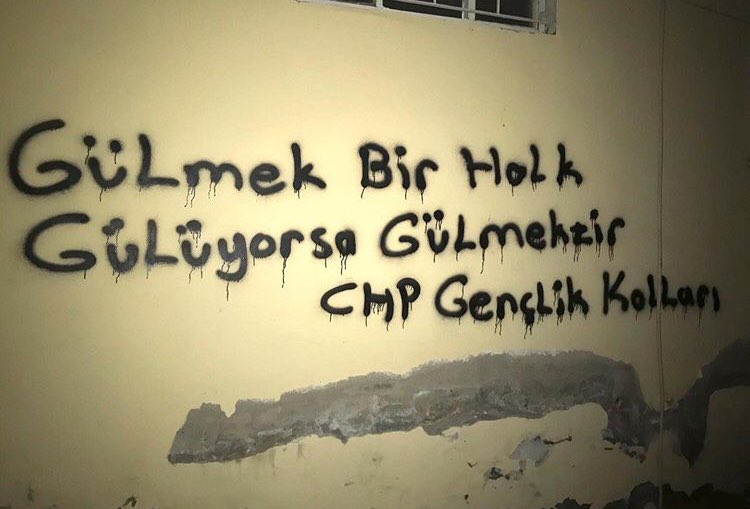 Gülmek Bir Halk
Gülüyorsa Gülmektir
CHP Gençlik Kolları